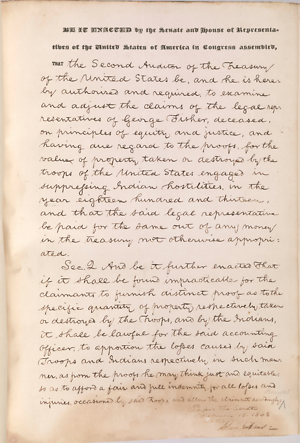 BE IT ENACTED by the Senate and House of Representa-
tives of the United States of America in Congress assembled,
THAT the Second Auditor of the Treasury
of the United States be, and he is here-
by authorized and required, to examine
and adjust the claims of the legal rep-
resentatives of George Fisher, deceased,
on principles of equity and justice, and
having due regard to the proofs, for the
value of property taken or destroyed by the
troops of the United States engaged in
suppressing Indian hostilities, in the
year eighteen hundred and thirteen,
and that the said legal representative
be paid for the same out of any money
in the treasury not otherwise appropri-
ated.
Sec. 2 And be it further enacted That
if it shall be found impracticable for the
claimants to furnish distinct proof as to the
specific quantity of property respectively taken
or destroyed by the Troops, and by the Indians,
it shall be lawful for the said accounting
officers to apportion the losses caused by said
Troops and Indians respectively, in such man-
ner, as from the proofs he may think just and equitable
so as to afford a fair and full indemnity for all losses and
injuries, occasioned by said Troops and allow the claimants accordingly